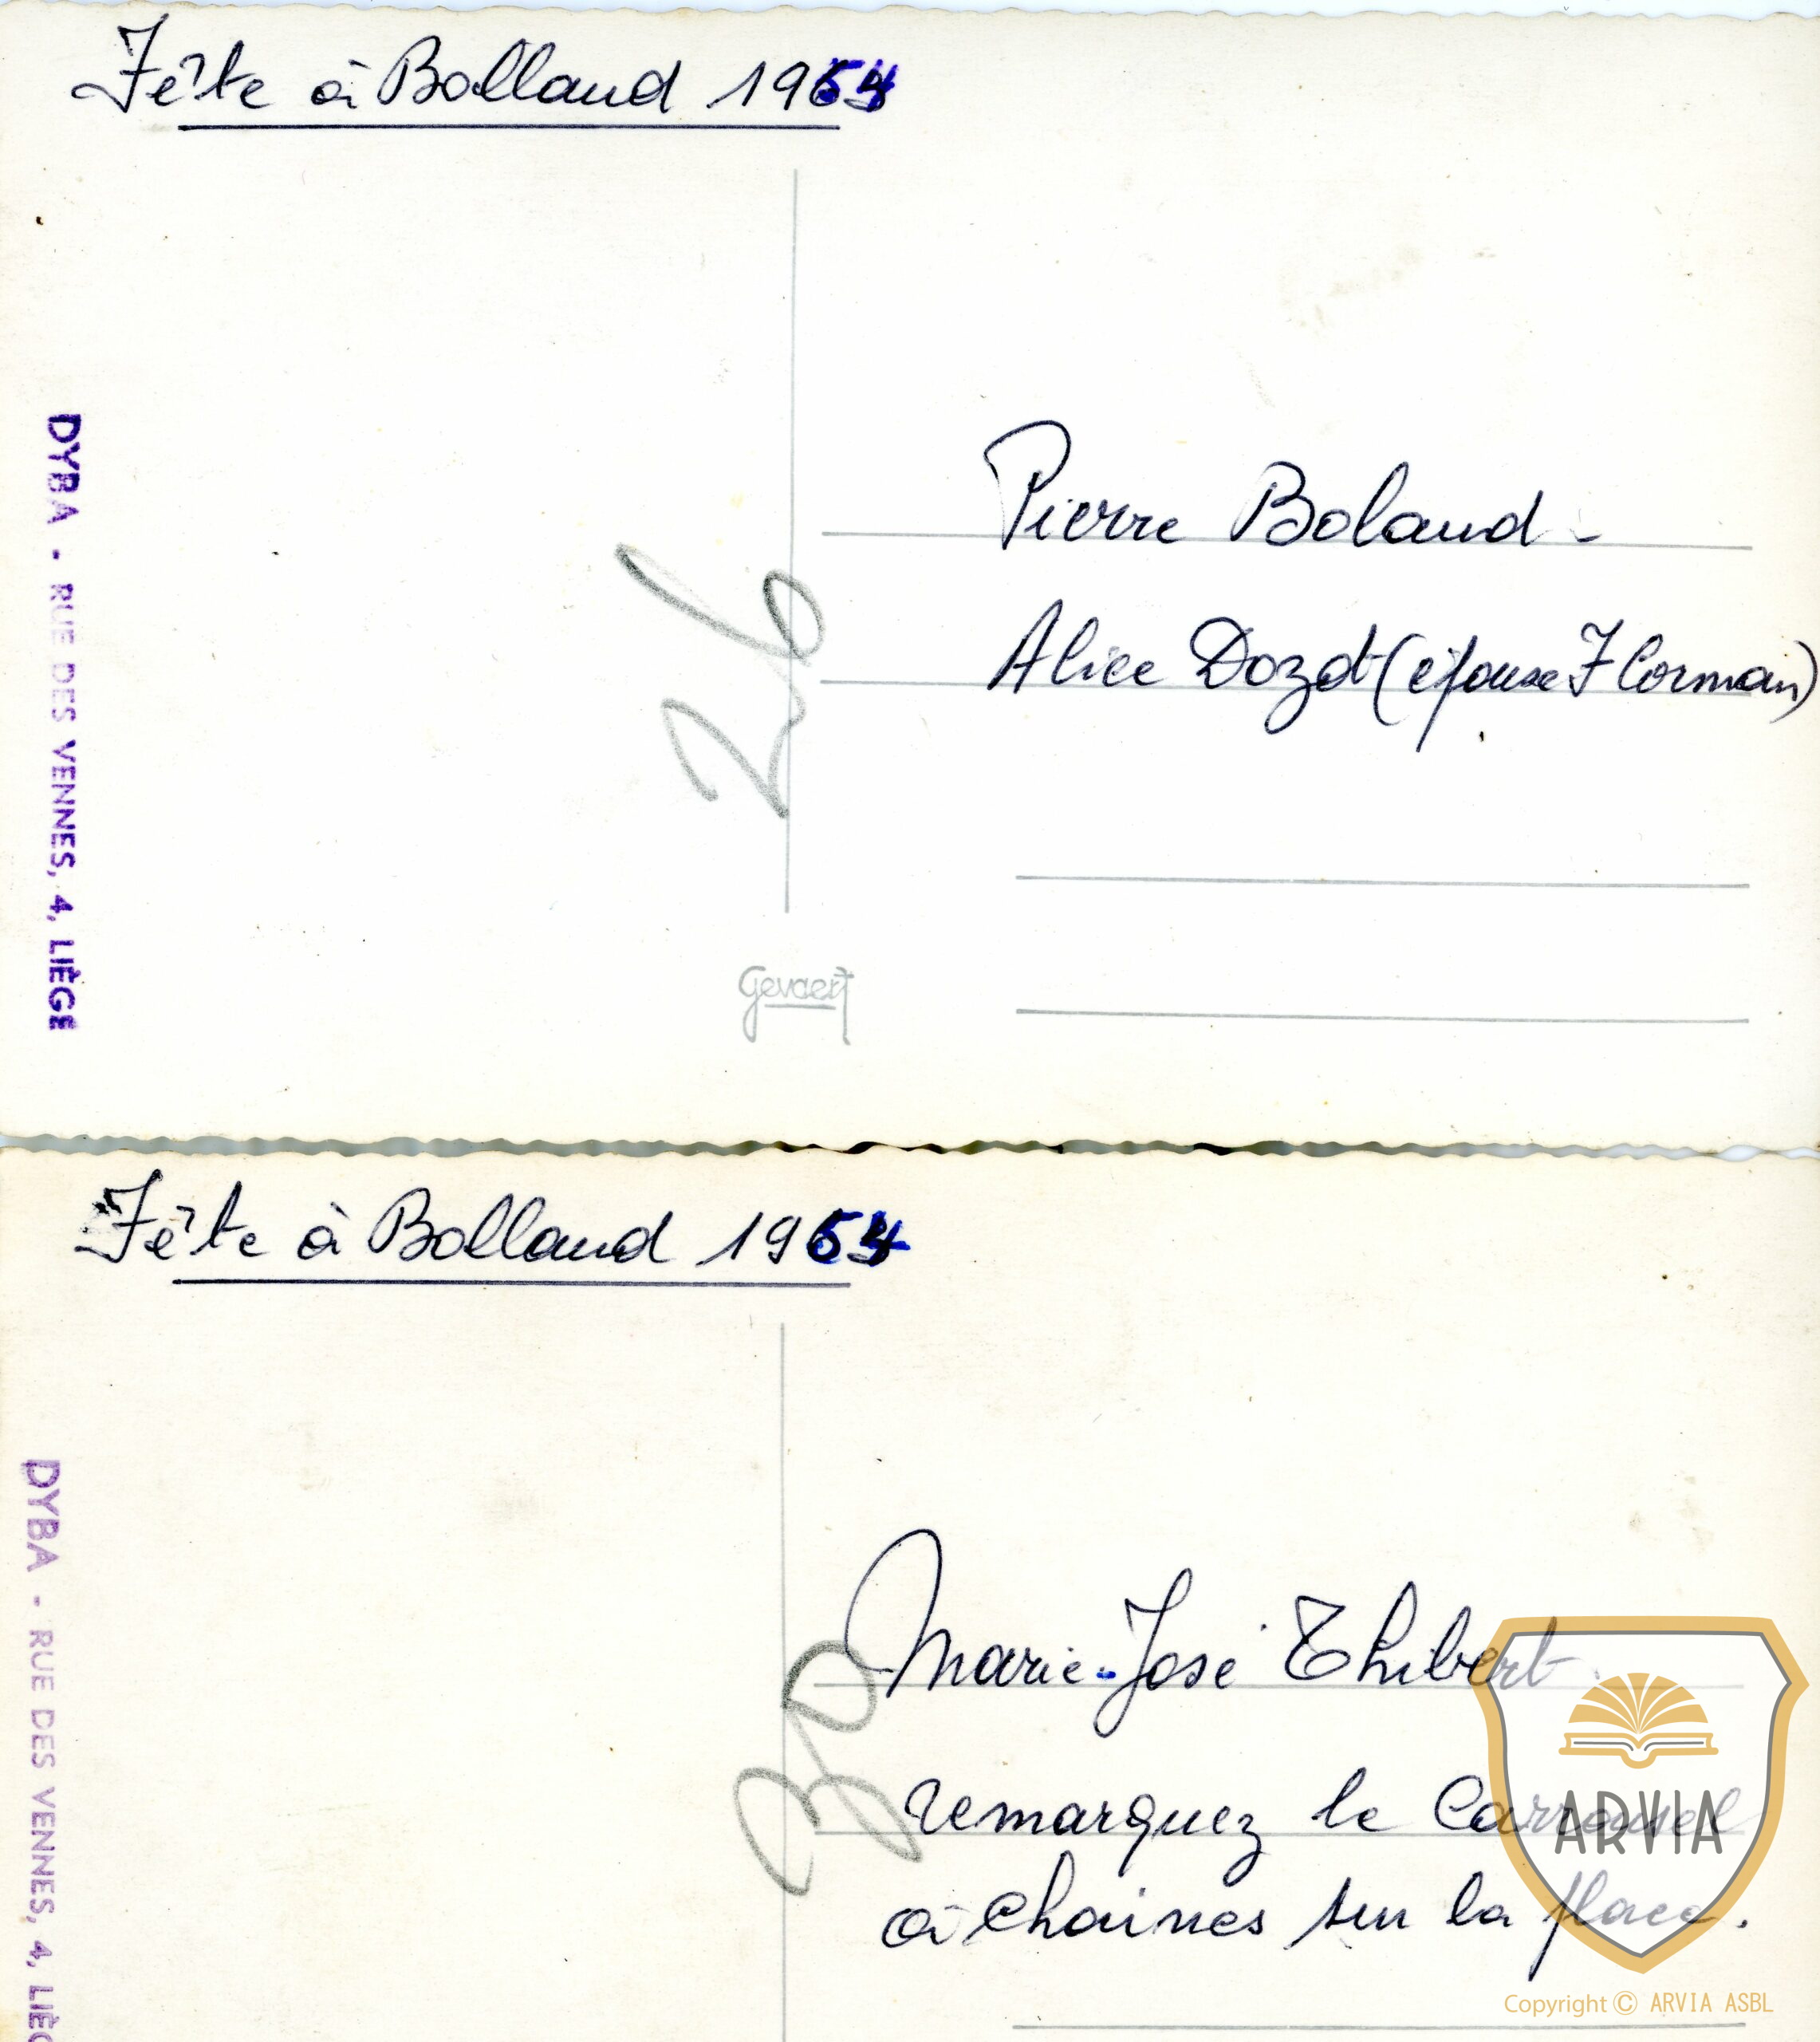 Fête à Bolland 1954
DYBA - RUE DES VENNES, 4, LIÈGE
26
Pierre Boland -
Alice Dozot (épouse F Corman)
Gevaert
Fête à Bolland 1954
DYBA - RUE DES VENNES, 4, LIÈG
30
Marie-José Thibert.
remarquez le Carrousel
à chaines sur la place.
ARVIA
Copyright © ARVIA ASBL